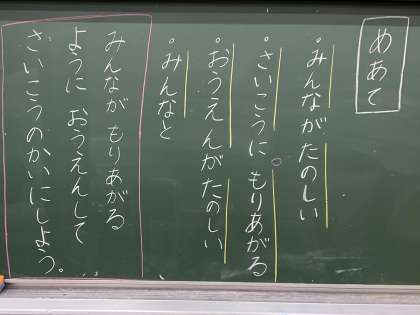 めあて
・みんながたのしい
・さいこうに もりあがる
・おうえんがたのしい
・みんなと
みんなが もりあがる
ように おうえんして
さいこうのかいにしよう。